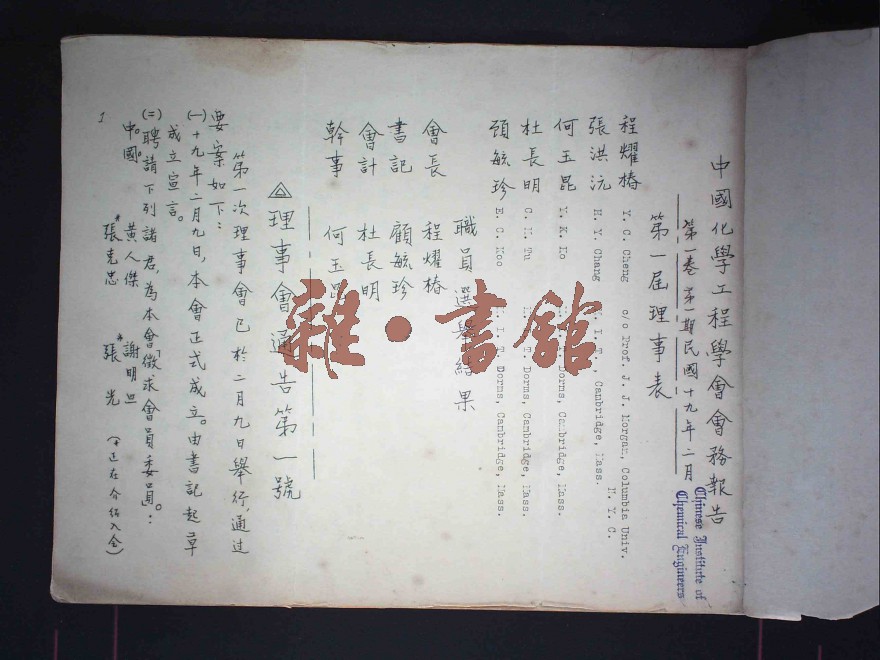 中國化學工程學會會務報告
第一卷第一期民國十九年二月
Chinese Institute of
Chemical Engineers
第一屆理事表
程耀椿 Y. C. Cheng c/o Prof. J. J. Morgan, Columbia Univ.
N. Y. C.
張洪沅 H. Y. Chang M. I. T., Cambridge, Mass.
何玉昆 Y. K. Ho Dorms, Cambridge, Mass.
杜長明 C. M. Tu M. I. T. Dorms, Cambridge, Mass.
顧毓珍 E. C. Koo M. I. T. Dorms, Cambridge, Mass.
職員選舉結果
會長 程耀椿
書記 顧毓珍
會計 杜長明
幹事 何玉昆
理事會通告第一號
第一次理事會已於二月九日舉行,通過
要案如下:
(一)十九年二月九日,本會正式成立。由書記起草
成立宣言。
(二)聘請下列諸君,為本會「徵求會員委員」。:
中國。 黃人傑 謝明山
*張克忠 *張光 (*正在介紹入會)
1
雜·書館